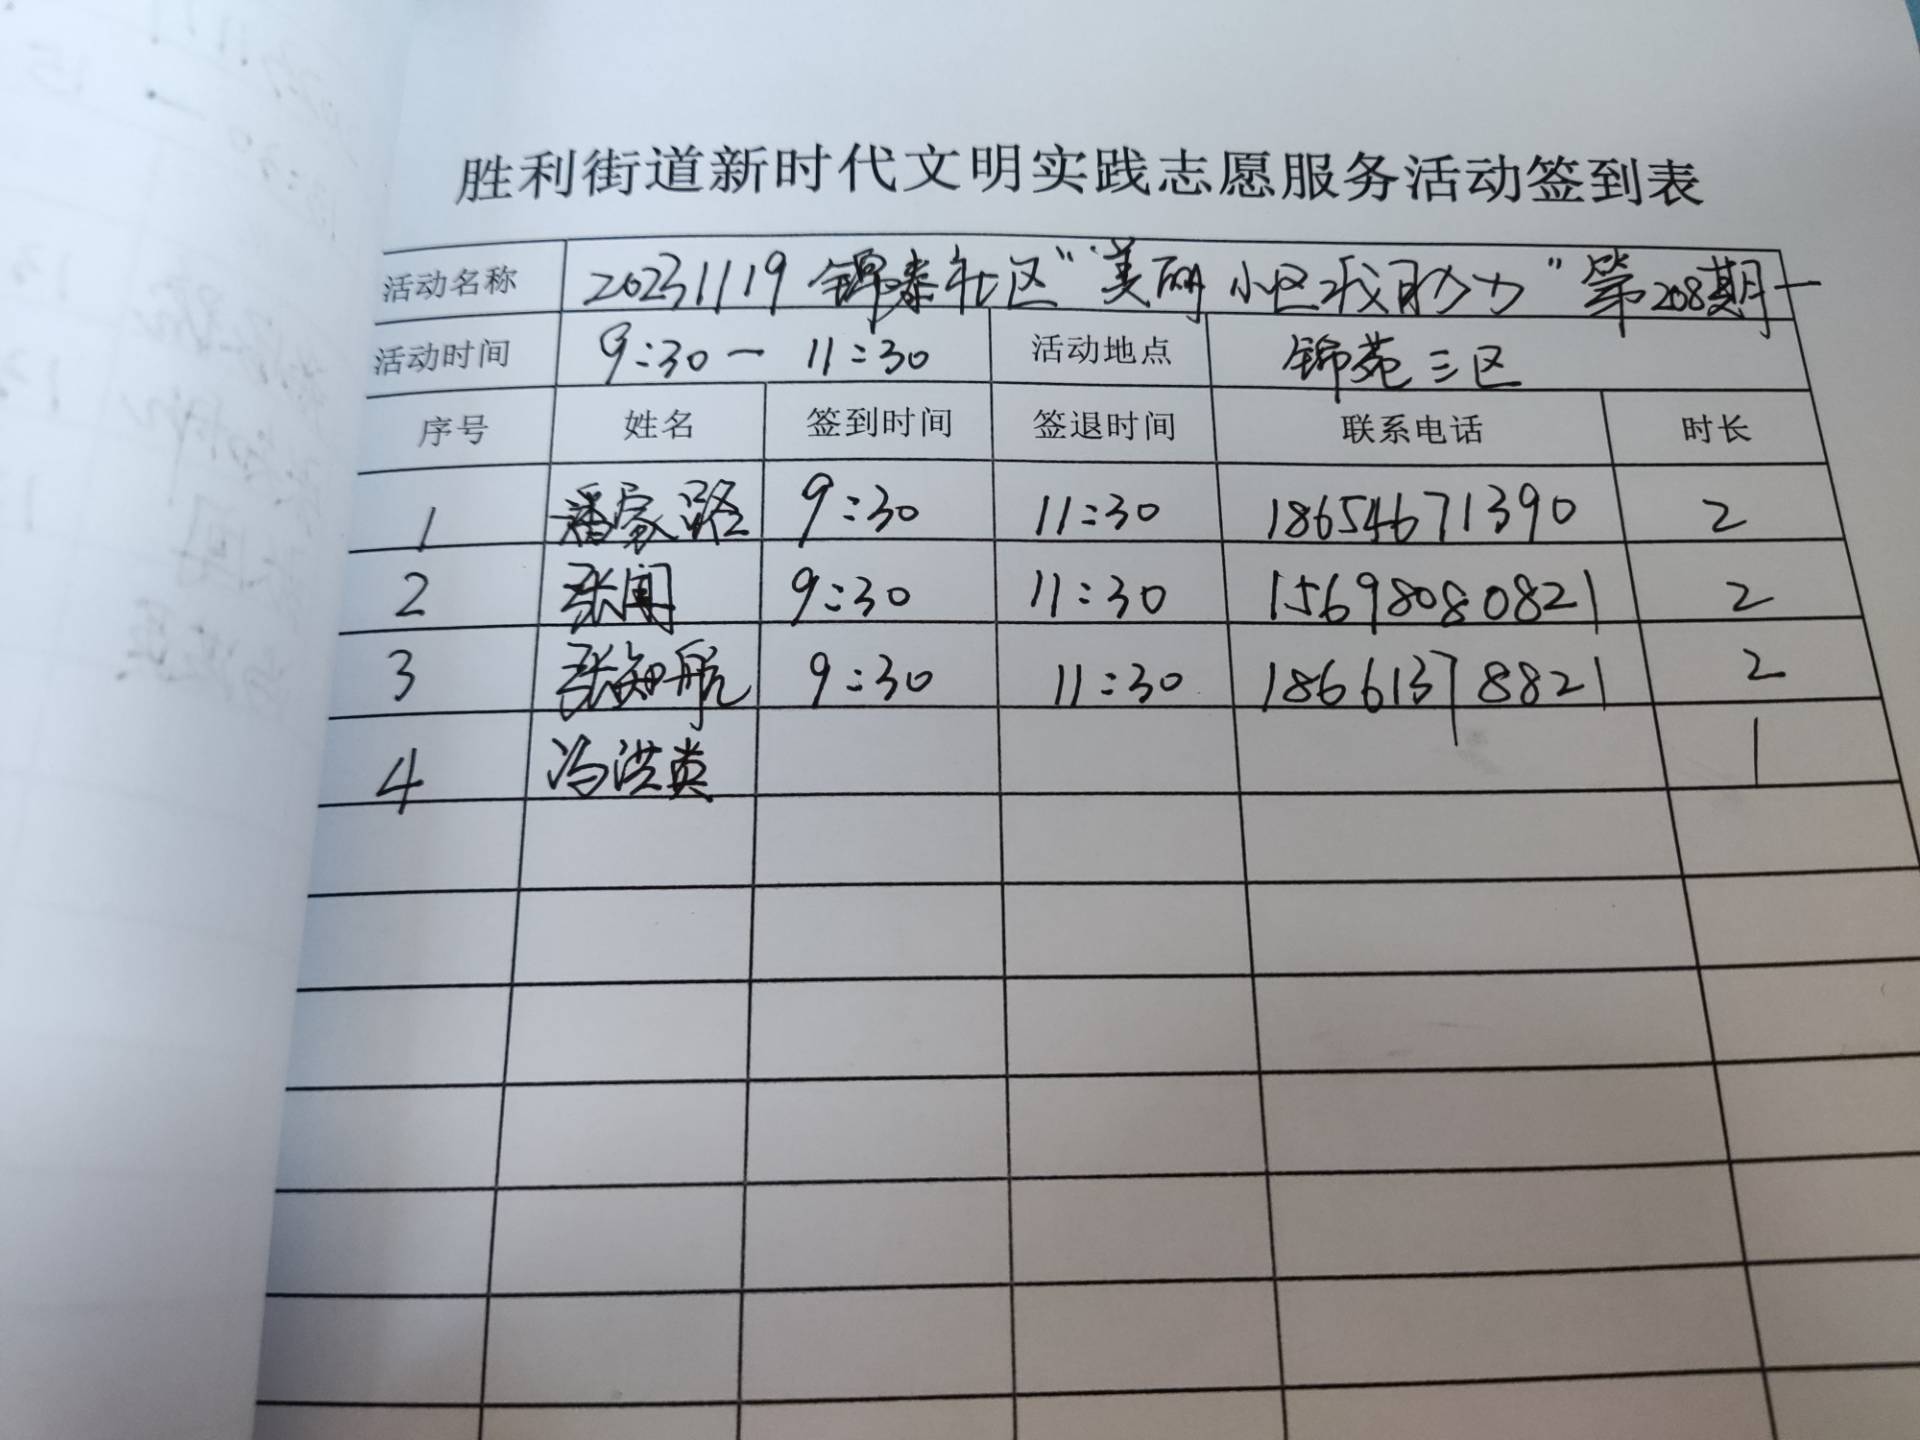 胜利街道新时代文明实践志愿服务活动签到表
活动名称 20231119 锦泰社区“美丽小区我助力”第208期
活动时间 9:30— 11:30 活动地点 锦苑三区
序号 姓名 签到时间 签退时间 联系电话 时长
1 潘家路 9:30 11:30 18654671390 2
2 张闻 9:30 11:30 15698080821 2
3 张知航 9:30 11:30 18661378821 2
4 冯洪英 1